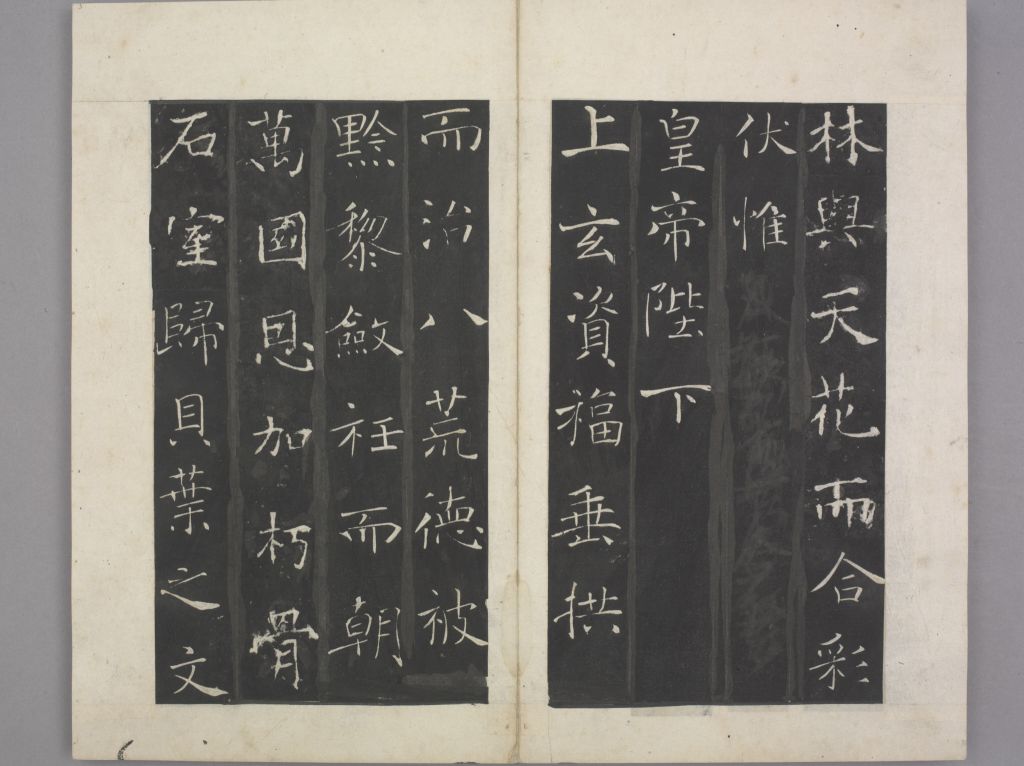 林與天花而合彩
伏惟
皇帝陛下
上玄資福垂拱
而治八荒德被
黔黎斂衽而朝
萬國恩加朽骨
石室歸貝葉之文